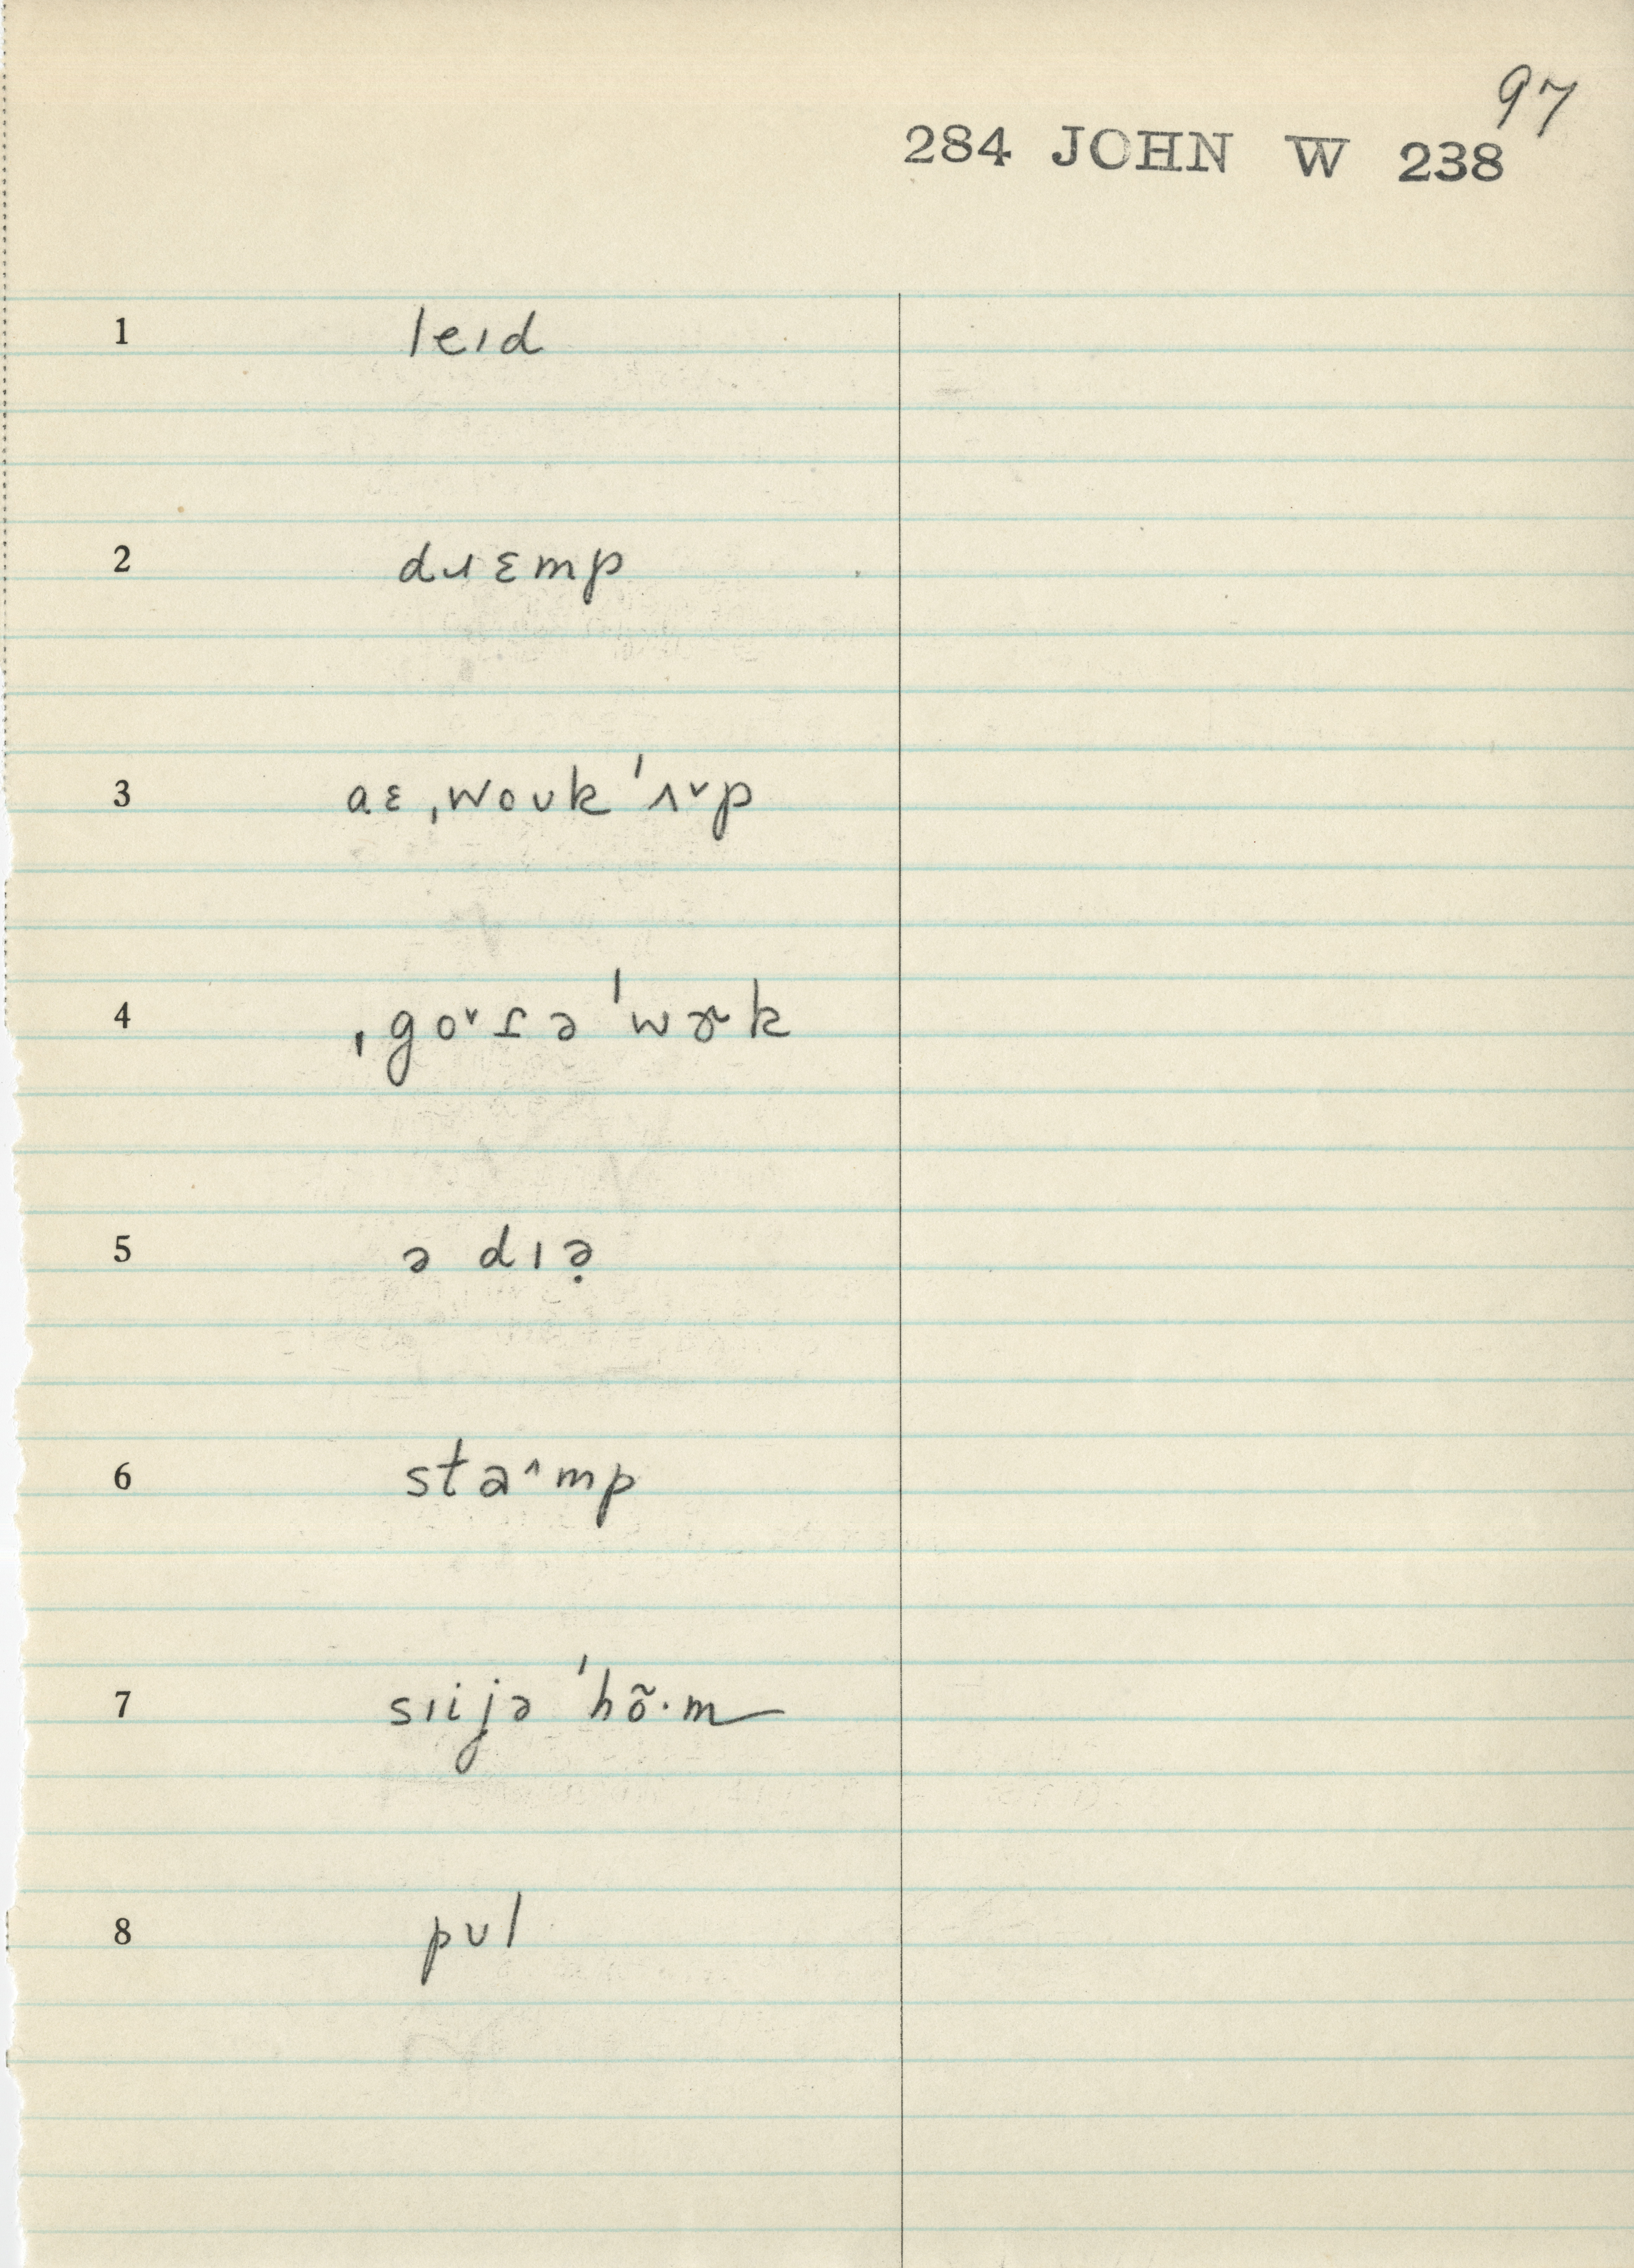 97
284 JOHN W 238
1 leɪd
2 dɹɛmp
3 aɛ ˌwoʊk ˈʌ˅p
4 ˌgo˅ɾə ˈwɝk
5 ə dɪə̣
6 sta^mp
7 sɪijə ˈhõ·m
8 pʊl